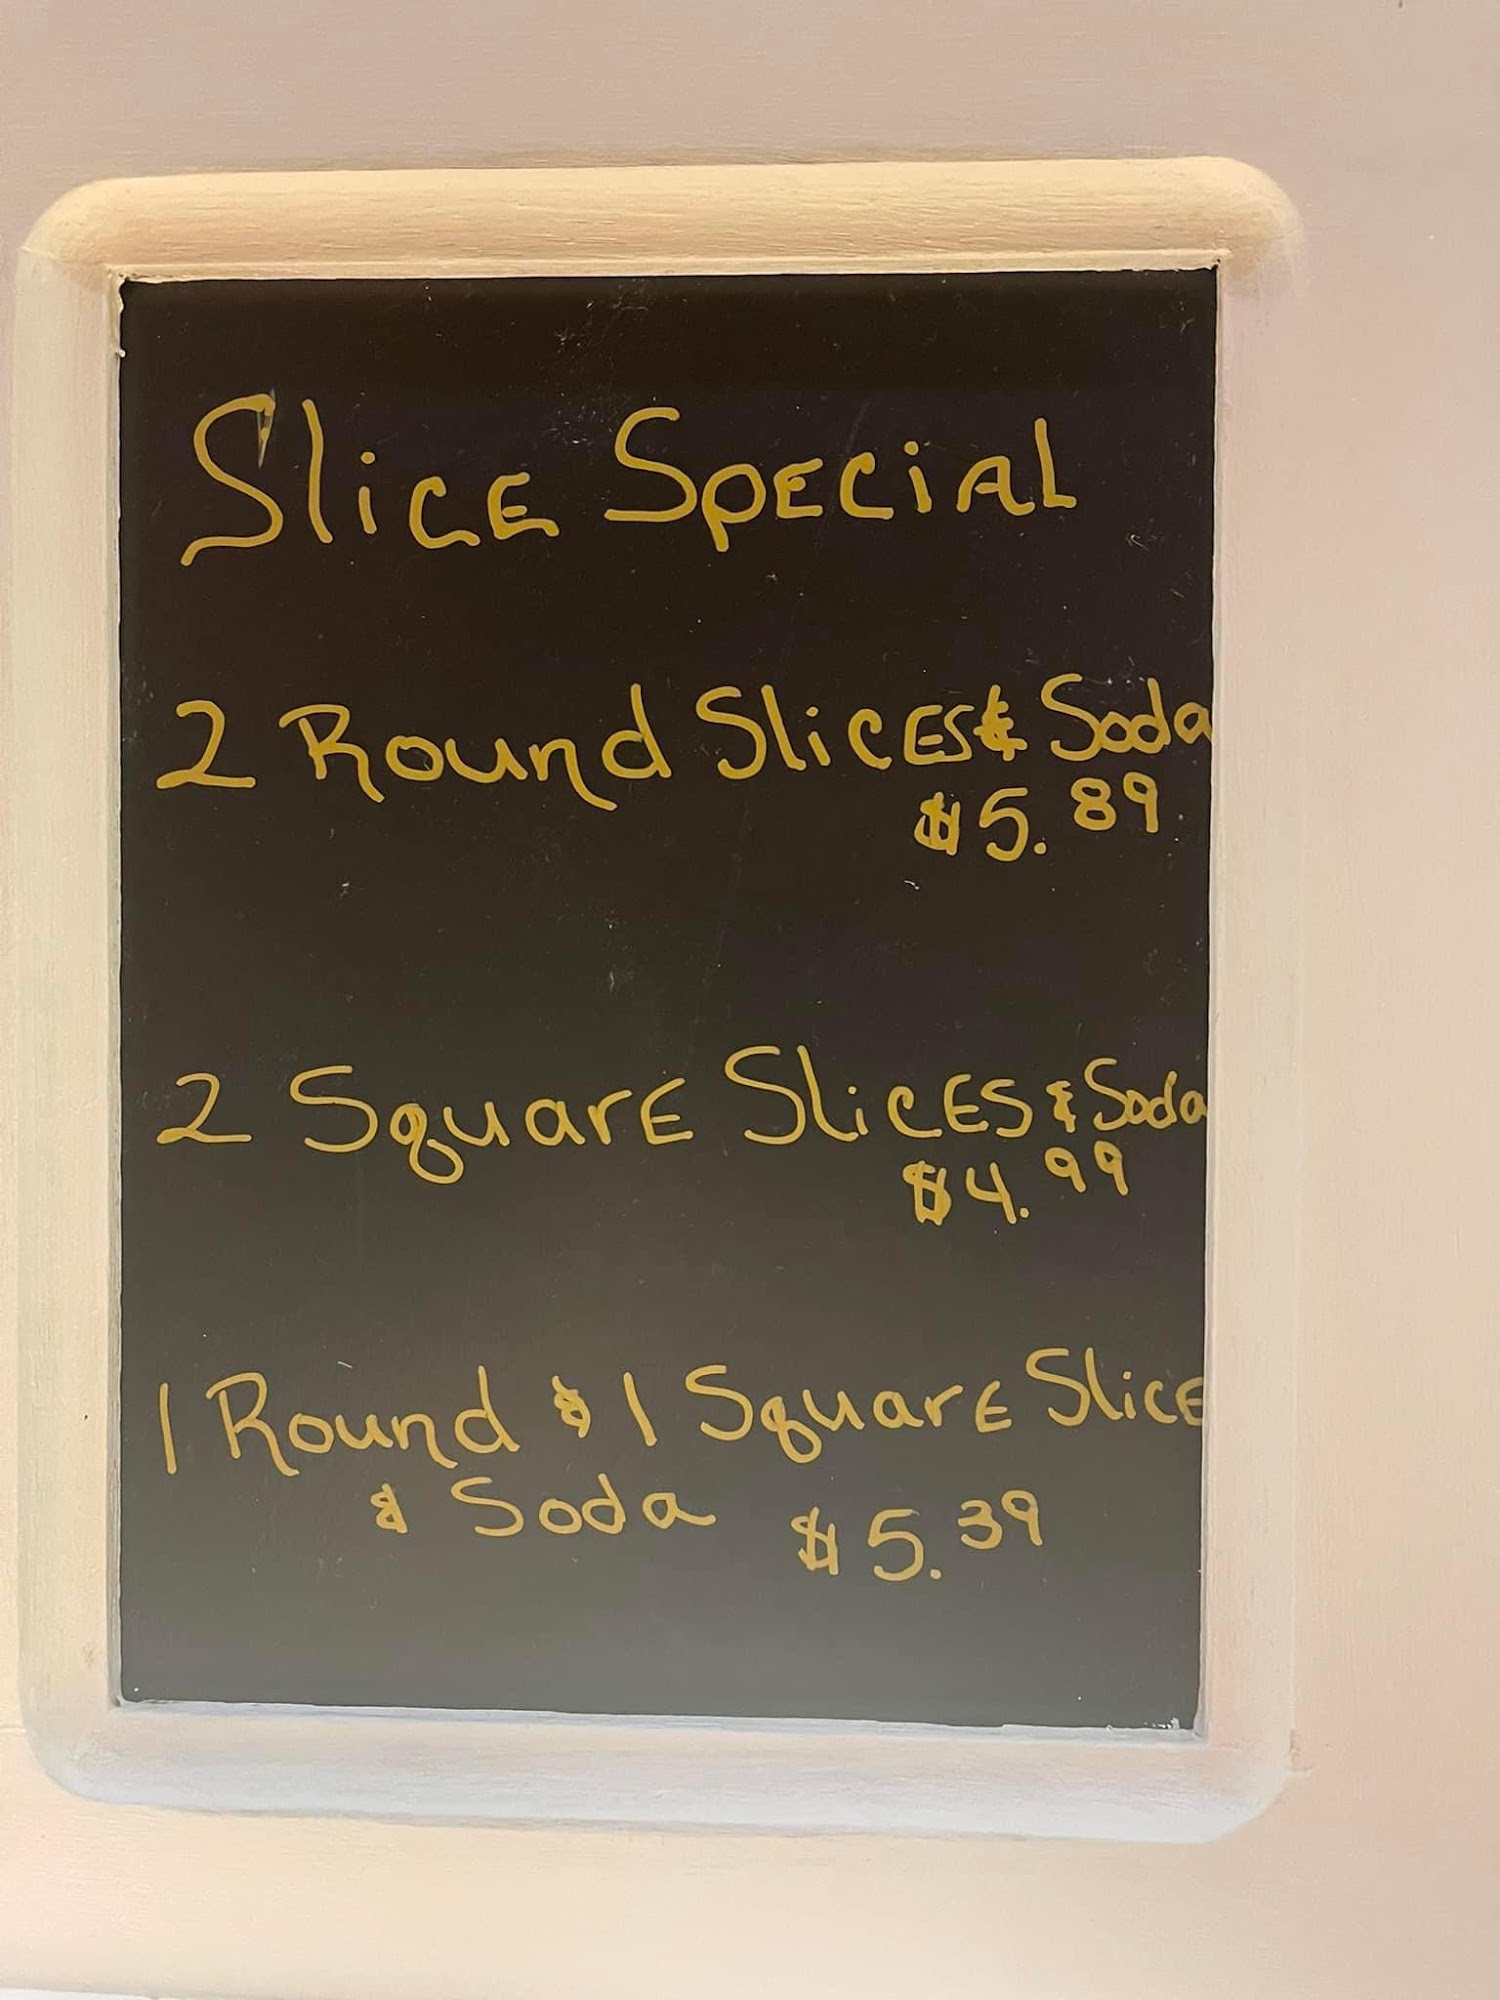 Slice Special
2 Round Slices & Soda
$5.89
2 Square Slices & Soda
$4.99
1 Round & 1 Square Slice
& Soda $5.39